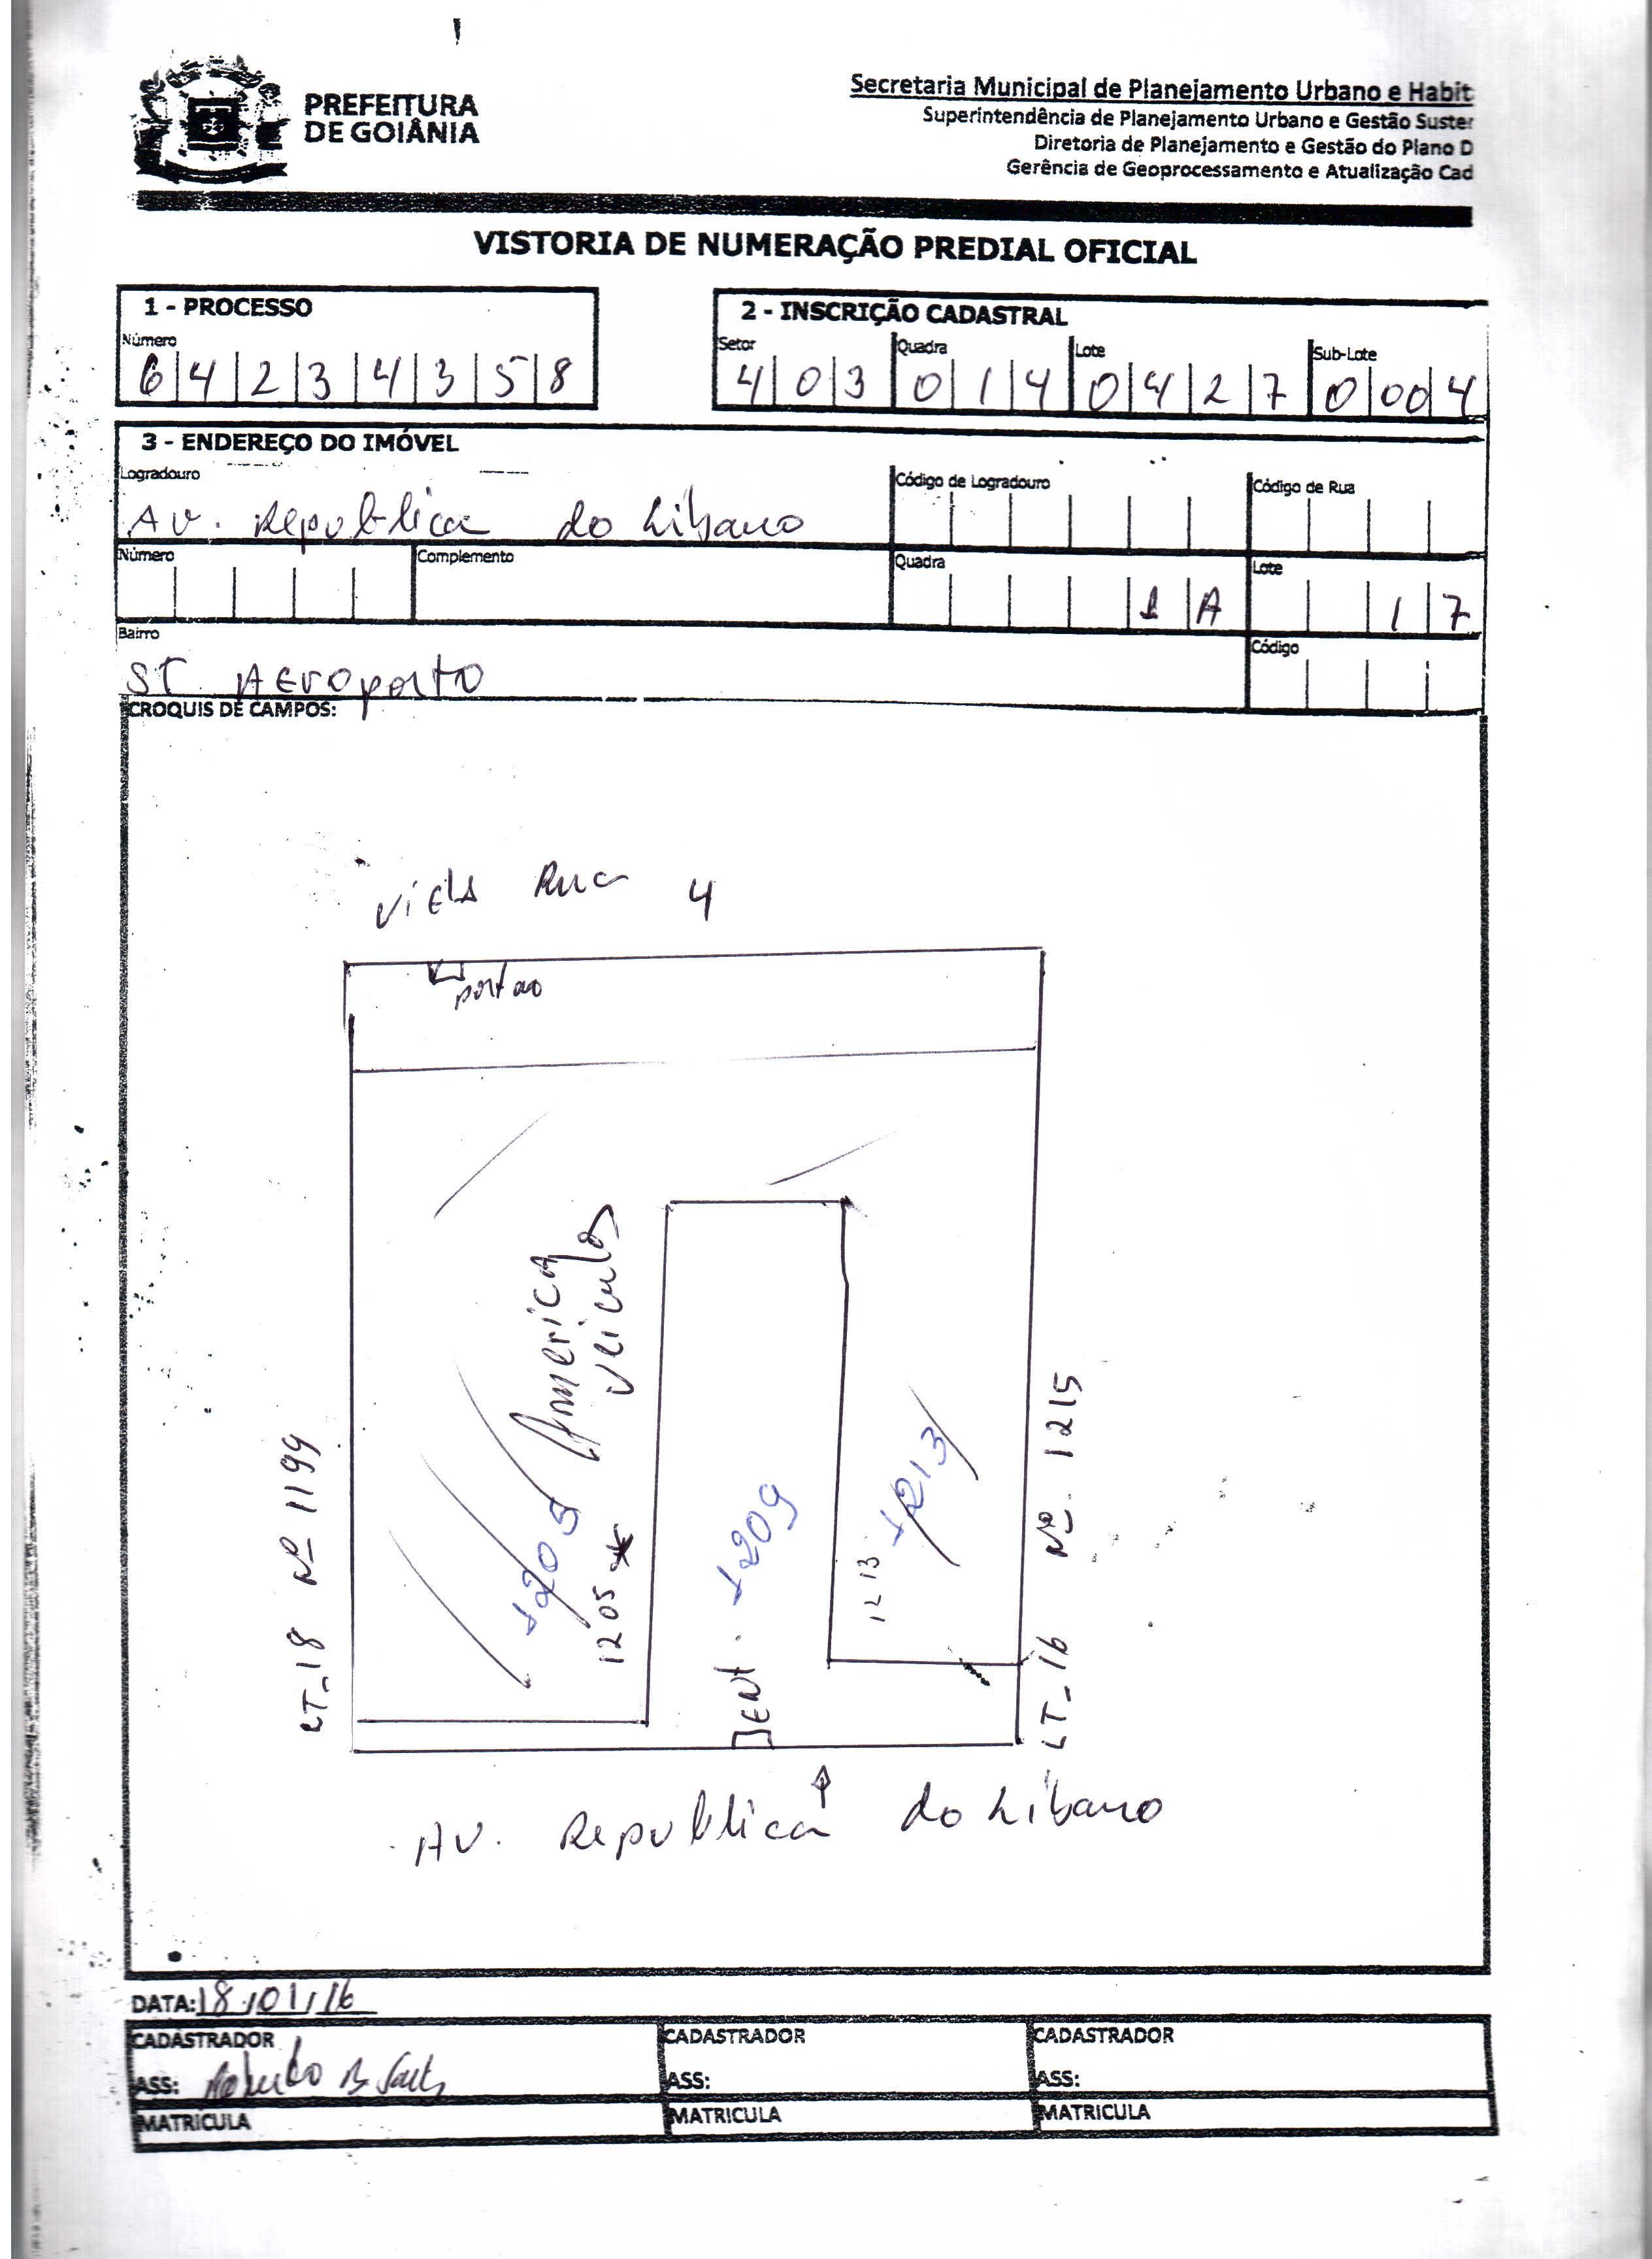 PREFEITURA
DE GOIÂNIA
Secretaria Municipal de Planejamento Urbano e Habit
Superintendência de Planejamento Urbano e Gestão Suster
Diretoria de Planejamento e Gestão do Plano D
Gerência de Geoprocessamento e Atualização Cad
VISTORIA DE NUMERAÇÃO PREDIAL OFICIAL
1 - PROCESSO
Número
6 4 2 3 4 3 5 8
2 - INSCRIÇÃO CADASTRAL
Setor Quadra Lote Sub-Lote
4 0 3 0 1 4 0 4 2 7 0 0 0 4
3 - ENDEREÇO DO IMÓVEL
Logradouro Código de Logradouro Código de Rua
AV. Republica do Libano
Número Complemento Quadra Lote
1 A 1 7
Bairro Código
ST AEroporto
CROQUIS DE CAMPOS:
viela Rua 4
portao
America
veiculos
LT_18 Nº 1199
1205
1205
ENt.
1209
1213
1213
LT_16 Nº. 1215
AV. Republica do Libano
DATA: 18/01/16
CADASTRADOR CADASTRADOR CADASTRADOR
ASS: ASS: ASS:
MATRICULA MATRICULA MATRICULA